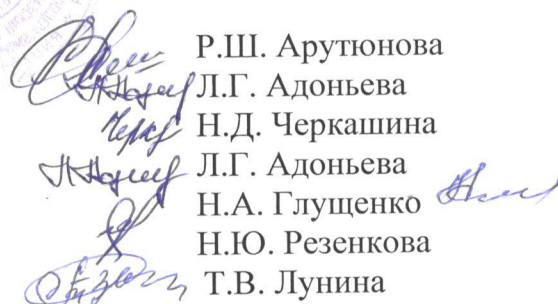 Р.Ш. Арутюнова
Л.Г. Адоньева
Н.Д. Черкашина
Л.Г. Адоньева
Н.А. Глущенко
Н.Ю. Резенкова
Т.В. Лунина